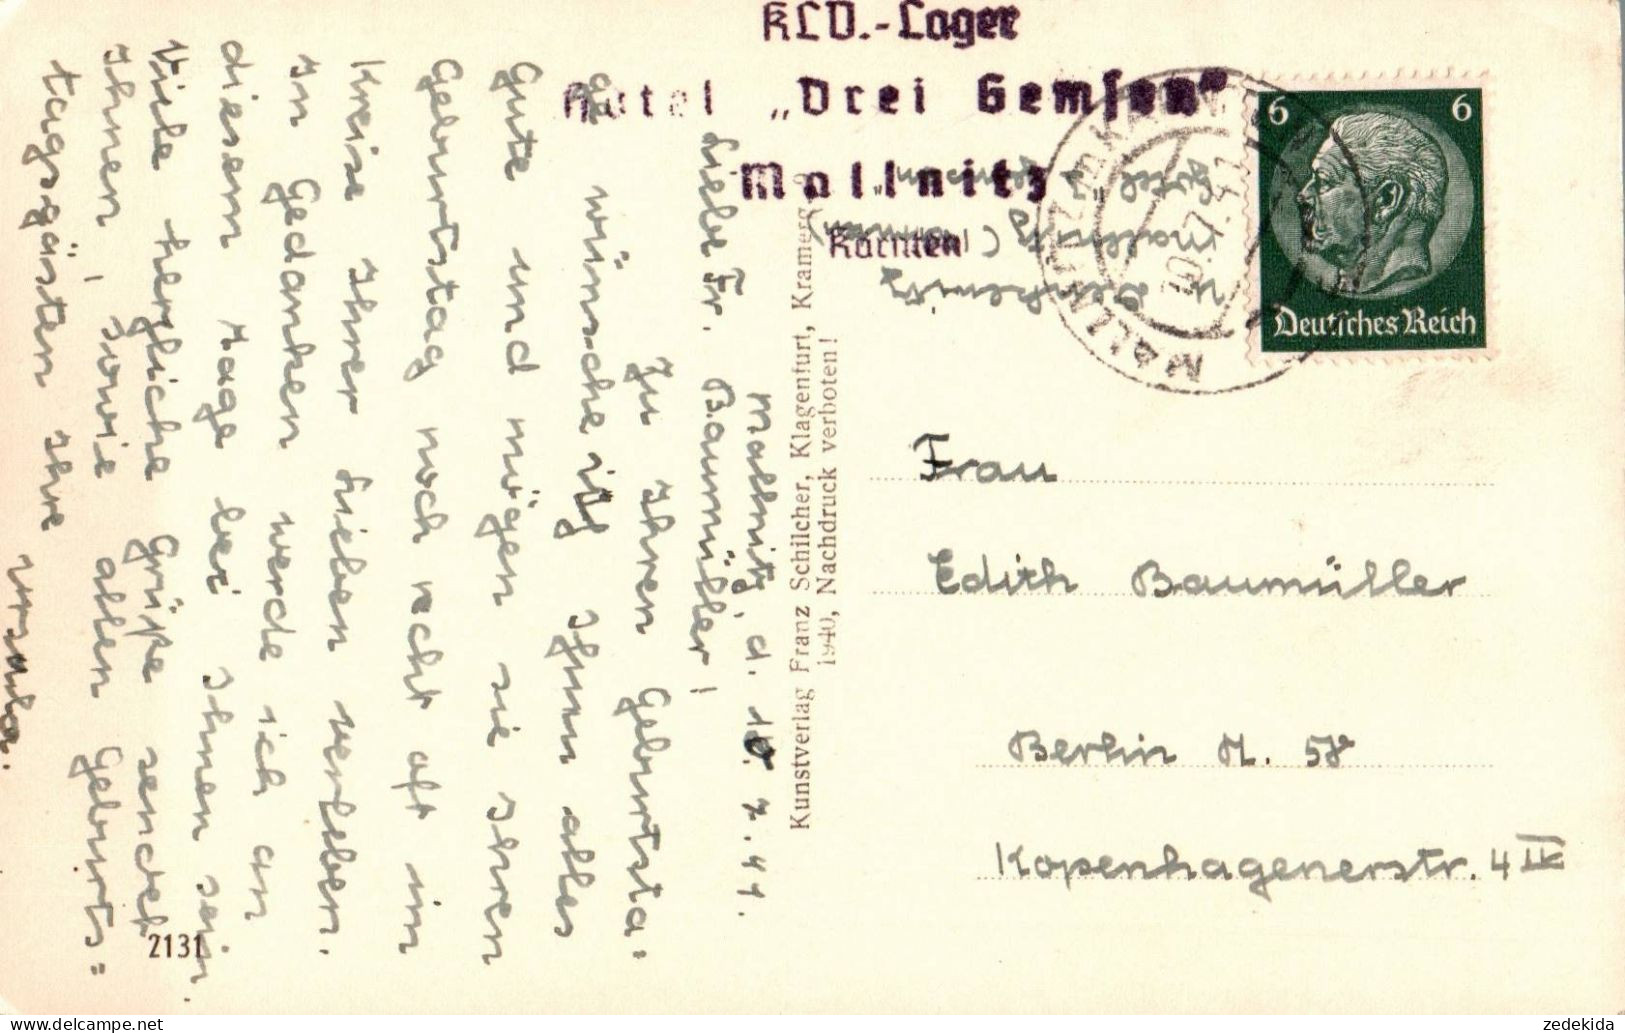 KLV.-Lager
Hotel „Drei Gemsen“
Mallnitz
Kärnten
MALLNITZ
10.7.41
6 6
Deutsches Reich
Mallnitz, d. 10. 7. 41.
Liebe Fr. Baumüller!
Zu Ihren Geburtsta=
ge wünsche ich Ihnen alles
Gute und mögen sie Ihren
Geburtstag noch recht oft im
Kreise Ihrer Lieben verleben.
In Gedanken werde ich an
diesem Tage bei Ihnen sein.
Viele herzliche Grüße sendet
Ihnen, sowie allen Geburts=
tagsgästen Ihre
Ursula.
Kunstverlag Franz Schilcher, Klagenfurt, Kramerg.
1940, Nachdruck verboten!
Mallnitz
Hotel
Frau
Edith Baumüller
Berlin N. 58
Kopenhagenerstr. 4 IV
2131
zedekida